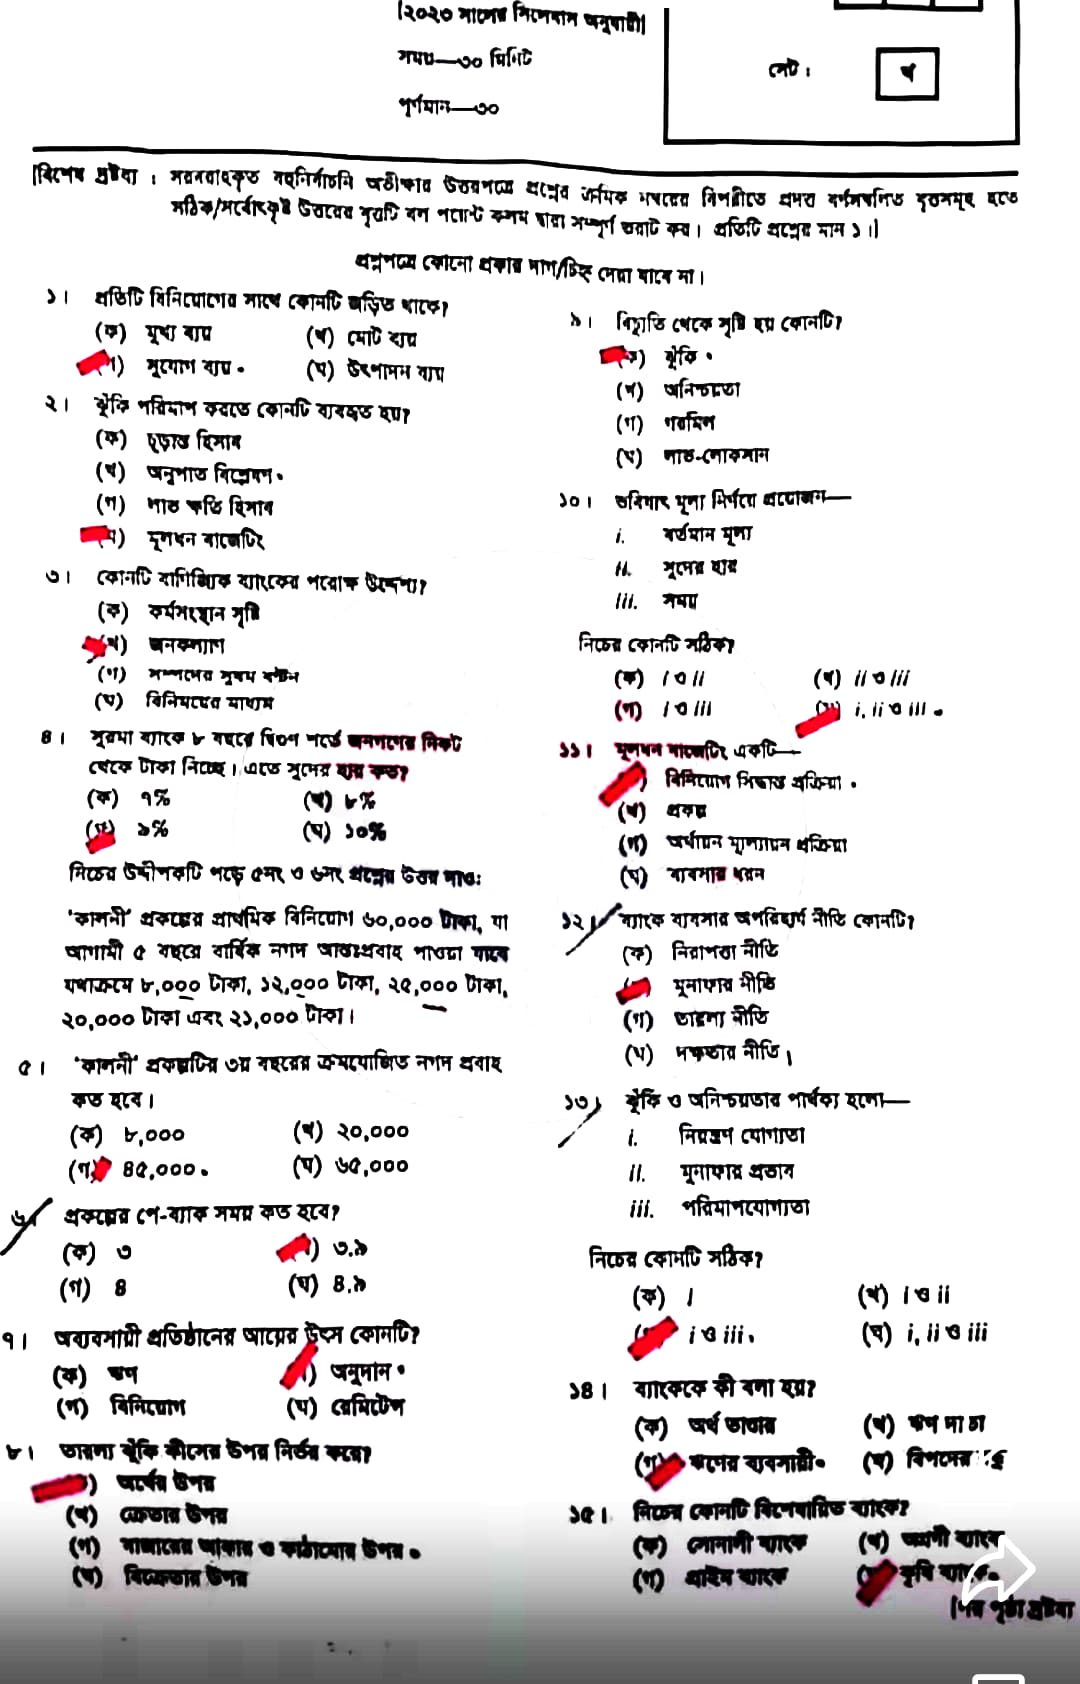 [২০২৩ সালের সিলেবাস অনুযায়ী]
সময়—৩০ মিনিট
পূর্ণমান—৩০
সেট :
খ
[বিশেষ দ্রষ্টব্য : সরবরাহকৃত বহুনির্বাচনি অভীক্ষার উত্তরপত্রে প্রশ্নের ক্রমিক নম্বরের বিপরীতে প্রদত্ত বর্ণসংবলিত বৃত্তসমূহ হতে
সঠিক/সর্বোৎকৃষ্ট উত্তরের বৃত্তটি বল পয়েন্ট কলম দ্বারা সম্পূর্ণ ভরাট কর। প্রতিটি প্রশ্নের মান ১।]
প্রশ্নপত্রে কোনো প্রকার দাগ/চিহ্ন দেয়া যাবে না।
১। প্রতিটি বিনিয়োগের সাথে কোনটি জড়িত থাকে?
(ক) মুখ্য ব্যয় (খ) মোট ব্যয়
সুযোগ ব্যয় (ঘ) উৎপাদন ব্যয়
২। ঝুঁকি পরিমাপ করতে কোনটি ব্যবহৃত হয়?
(ক) চূড়ান্ত হিসাব
(খ) অনুপাত বিশ্লেষণ
(গ) লাভ ক্ষতি হিসাব
মূলধন বাজেটিং
৩। কোনটি বাণিজ্যিক ব্যাংকের পরোক্ষ উদ্দেশ্য?
(ক) কর্মসংস্থান সৃষ্টি
(খ) জনকল্যাণ
(গ) সম্পদের সুষম বণ্টন
(ঘ) বিনিময়ের মাধ্যম
৪। সুরমা ব্যাংক ৮ বছরে দ্বিগুণ শর্তে জনগণের নিকট
থেকে টাকা নিচ্ছে। এতে সুদের হার কত?
(ক) ৭% (খ) ৮%
(গ) ৯% (ঘ) ১০%
নিচের উদ্দীপকটি পড়ে ৫নং ও ৬নং প্রশ্নের উত্তর দাও:
'কালনী' প্রকল্পের প্রাথমিক বিনিয়োগ ৬০,০০০ টাকা, যা
আগামী ৫ বছরে বার্ষিক নগদ আন্তঃপ্রবাহ পাওয়া যাবে
যথাক্রমে ৮,০০০ টাকা, ১২,০০০ টাকা, ২৫,০০০ টাকা,
২০,০০০ টাকা এবং ২১,০০০ টাকা।
৫। 'কালনী' প্রকল্পটির ৩য় বছরের ক্রমযোজিত নগদ প্রবাহ
কত হবে।
(ক) ৮,০০০ (খ) ২০,০০০
(গ) ৪৫,০০০ (ঘ) ৬৫,০০০
৬। প্রকল্পের পে-ব্যাক সময় কত হবে?
(ক) ৩ ৩.৯
(গ) ৪ (ঘ) ৪.৯
৭। অব্যবসায়ী প্রতিষ্ঠানের আয়ের উৎস কোনটি?
(ক) ঋণ অনুদান
(গ) বিনিয়োগ (ঘ) রেমিটেন্স
৮। তারল্য ঝুঁকি কীসের উপর নির্ভর করে?
অর্থের উপর
(খ) ক্রেতার উপর
(গ) বাজারের আকার ও কাঠামোর উপর
(ঘ) বিক্রেতার উপর
৯। বিচ্যুতি থেকে সৃষ্টি হয় কোনটি?
(ক) ঝুঁকি
(খ) অনিশ্চয়তা
(গ) গরমিল
(ঘ) লাভ-লোকসান
১০। ভবিষ্যৎ মূল্য নির্ণয়ে প্রয়োজন—
i. বর্তমান মূল্য
ii. সুদের হার
iii. সময়
নিচের কোনটি সঠিক?
(ক) i ও ii (খ) ii ও iii
(গ) i ও iii (ঘ) i, ii ও iii
১১। মূলধন বাজেটিং একটি—
বিনিয়োগ সিদ্ধান্ত প্রক্রিয়া
(খ) প্রকল্প
(গ) অর্থায়ন মূল্যায়ন প্রক্রিয়া
(ঘ) ব্যবসার ধরন
১২। ব্যাংক ব্যবসার অপরিহার্য নীতি কোনটি?
(ক) নিরাপত্তা নীতি
মুনাফার নীতি
(গ) তারল্য নীতি
(ঘ) দক্ষতার নীতি
১৩। ঝুঁকি ও অনিশ্চয়তার পার্থক্য হলো—
i. নিয়ন্ত্রণ যোগ্যতা
ii. মুনাফার প্রভাব
iii. পরিমাপযোগ্যতা
নিচের কোনটি সঠিক?
(ক) i (খ) i ও ii
i ও iii (ঘ) i, ii ও iii
১৪। ব্যাংককে কী বলা হয়?
(ক) অর্থ ভান্ডার (খ) ঋণ দাতা
(গ) ঋণের ব্যবসায়ী (ঘ) বিপদের
১৫। নিচের কোনটি বিশেষায়িত ব্যাংক?
(ক) সোনালী ব্যাংক (খ) অগ্রণী ব্যাংক
(গ) প্রাইম ব্যাংক কৃষি ব্যাংক
[পর পৃষ্ঠা দ্রষ্টব্য